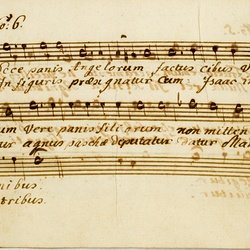 No: 6.
Ecce panis Angelorum factus cibus V
In figuris præsignatur Cum Isaac i
um Vere panis filiorum non mitten
ur agnus paschæ deputatur datur Man
nibus.
tribus.